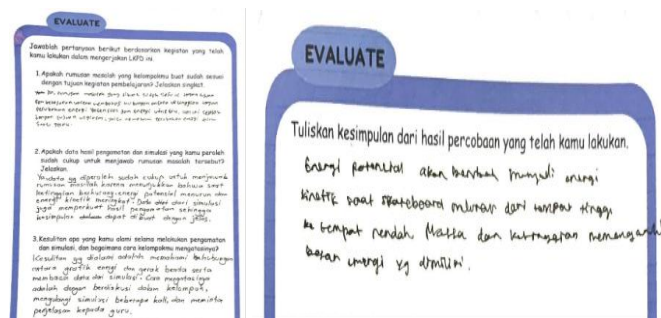 EVALUATE
Jawablah pertanyaan berikut berdasarkan kegiatan yang telah
kamu lakukan dalam mengerjakan LKPD ini.
1. Apakah rumusan masalah yang kelompokmu buat sudah sesuai
dengan tujuan kegiatan pembelajaran? Jelaskan singkat.
2. Apakah data hasil pengamatan dan simulasi yang kamu peroleh
sudah cukup untuk menjawab rumusan masalah tersebut?
Jelaskan.
Ya data yg diperoleh sudah cukup untuk menjawab
rumusan masalah karena menunjukkan bahwa saat
ketinggian berkurang, energi potensial menurun dan
energi kinetik meningkat. Data dari simulasi
juga memperkuat hasil pengamatan sehingga
kesimpulan dapat dibuat dengan jelas.
3. Kesulitan apa yang kamu alami selama melakukan pengamatan
dan simulasi, dan bagaimana cara kelompokmu mengatasinya?
Kesulitan yg dialami adalah memahami hubungan
antara grafik energi dan gerak benda serta
membaca data dari simulasi. Cara mengatasinya
adalah dengan berdiskusi dalam kelompok,
mengulangi simulasi beberapa kali, dan meminta
penjelasan kepada guru.
EVALUATE
Tuliskan kesimpulan dari hasil percobaan yang telah kamu lakukan.
Energi potensial akan berubah menjadi energi
kinetik saat skateboard meluncur dari tempat tinggi
ke tempat rendah. Massa dan ketinggian
besar energi yg dimiliki.